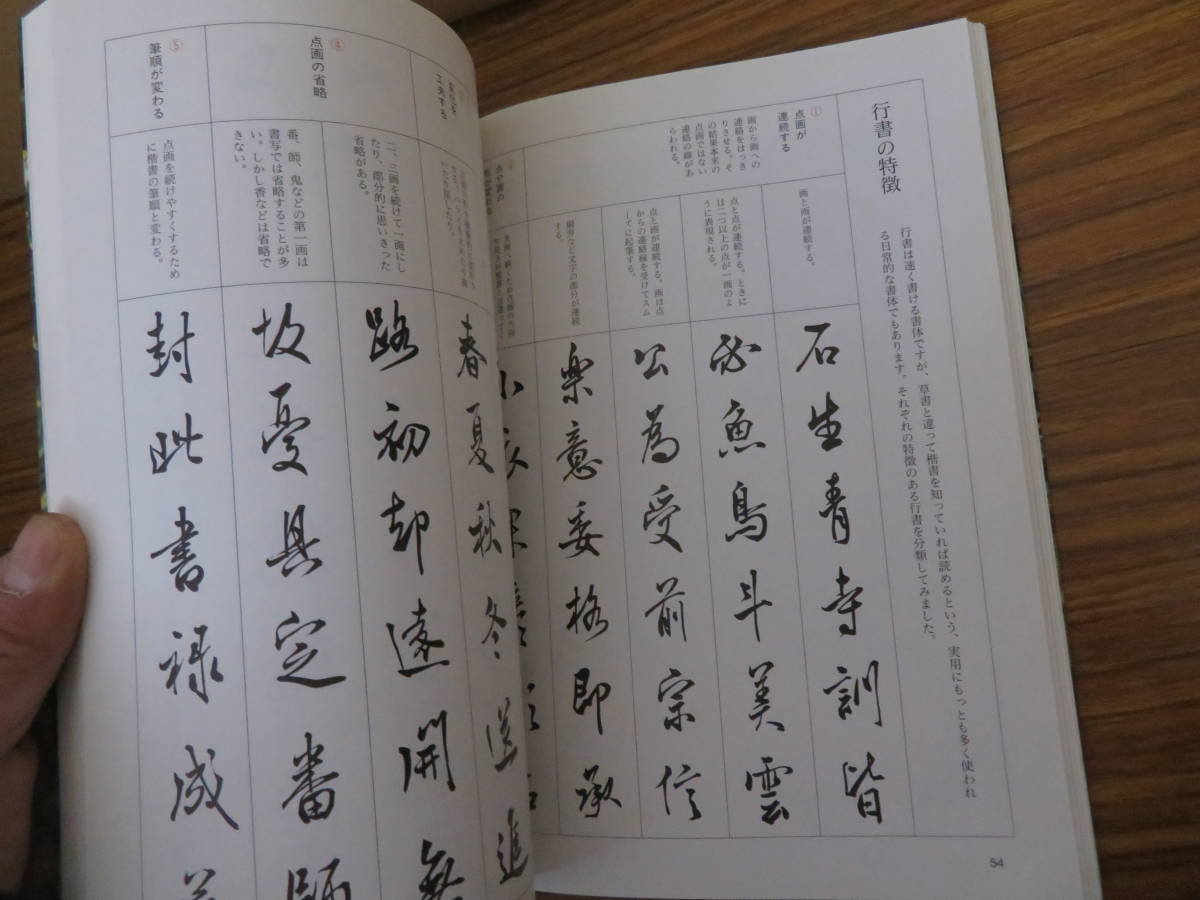 行書の特徴
行書は速く書ける書体ですが、草書と違って楷書を知っていれば読めるという、実用にもっとも多く使われ
る日常的な書体でもあります。それぞれの特徴のある行書を分類してみました。
①
点画が
連続する
画から画への
連絡をはっき
りさせる。そ
の結果本来の
点画ではない
連絡の線があ
らわれる。
画と画が連続する。
石生青寺訓皆
点と点が連続する。ときに
は二つ以上の点が一画のよ
うに表現される。
必魚鳥斗美雲
点と画が連続する。画は点
からの連絡線を受けてスム
ーズに起筆する。
公為受前宗信
偏旁など文字の部分が連続
する。
楽意委格即承
②
点や画の
工夫する
春夏秋冬送進
④
点画の省略
二、三画を続けて一画にし
たり、部分的に思いきった
省略がある。
路初却遠開無
番、師、鬼などの第一画は
書写では省略することが多
い。しかし香などは省略で
きない。
故憂具定番師
⑤
筆順が変わる
点画を続けやすくするため
に楷書の筆順と変わる。
封此書禄成
54